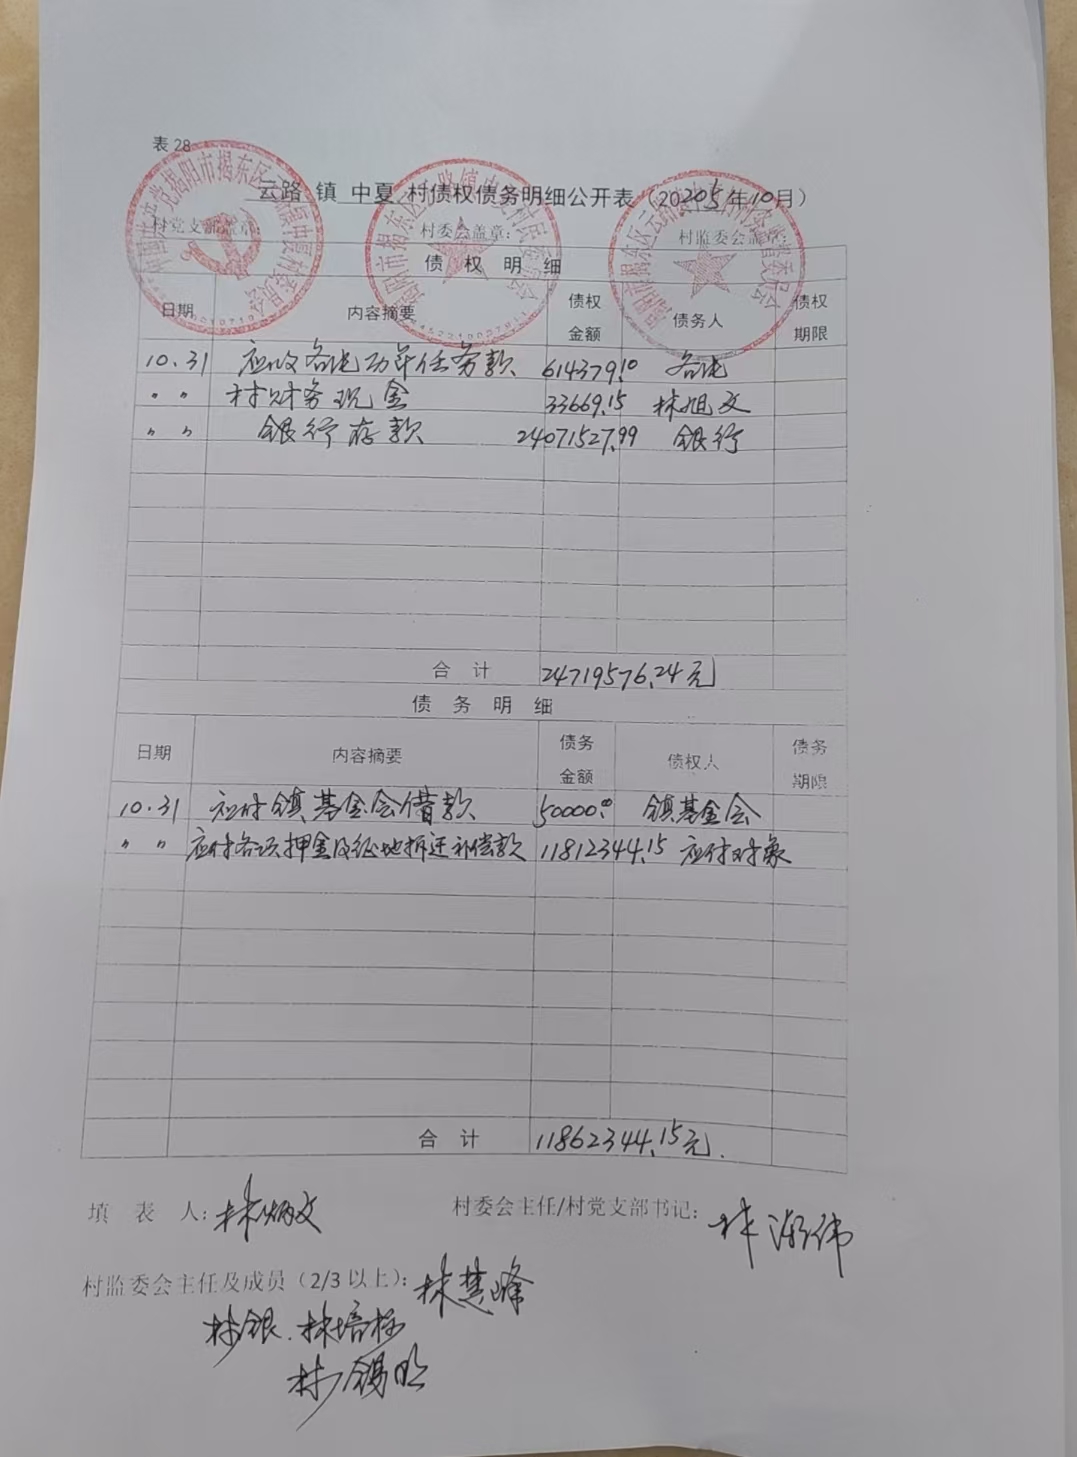 表 28
云路 镇 中夏 村债权债务明细公开表（2025年10月）
村党支部盖章： 村委会盖章： 村监委会盖章：
债 权 明 细
日期 内容摘要 债权金额 债务人 债权期限
10.31 应收各 历年任务款 614379.10
〃 〃 村财务现金 33669.15 林旭文
〃 〃 银行存款 24071527.99 银行
合 计 24719576.24元
债 务 明 细
日期 内容摘要 债务金额 债权人 债务期限
10.31 应付镇基金会借款 50000.00 镇基金会
〃 〃 应付各项押金及征地拆迁补偿款 11812344.15 应付对象
合 计 11862344.15元.
填 表 人：林炳文 村委会主任/村党支部书记：林 伟
村监委会主任及成员（2/3 以上）：林慧峰
林银. 林培标
林锡明